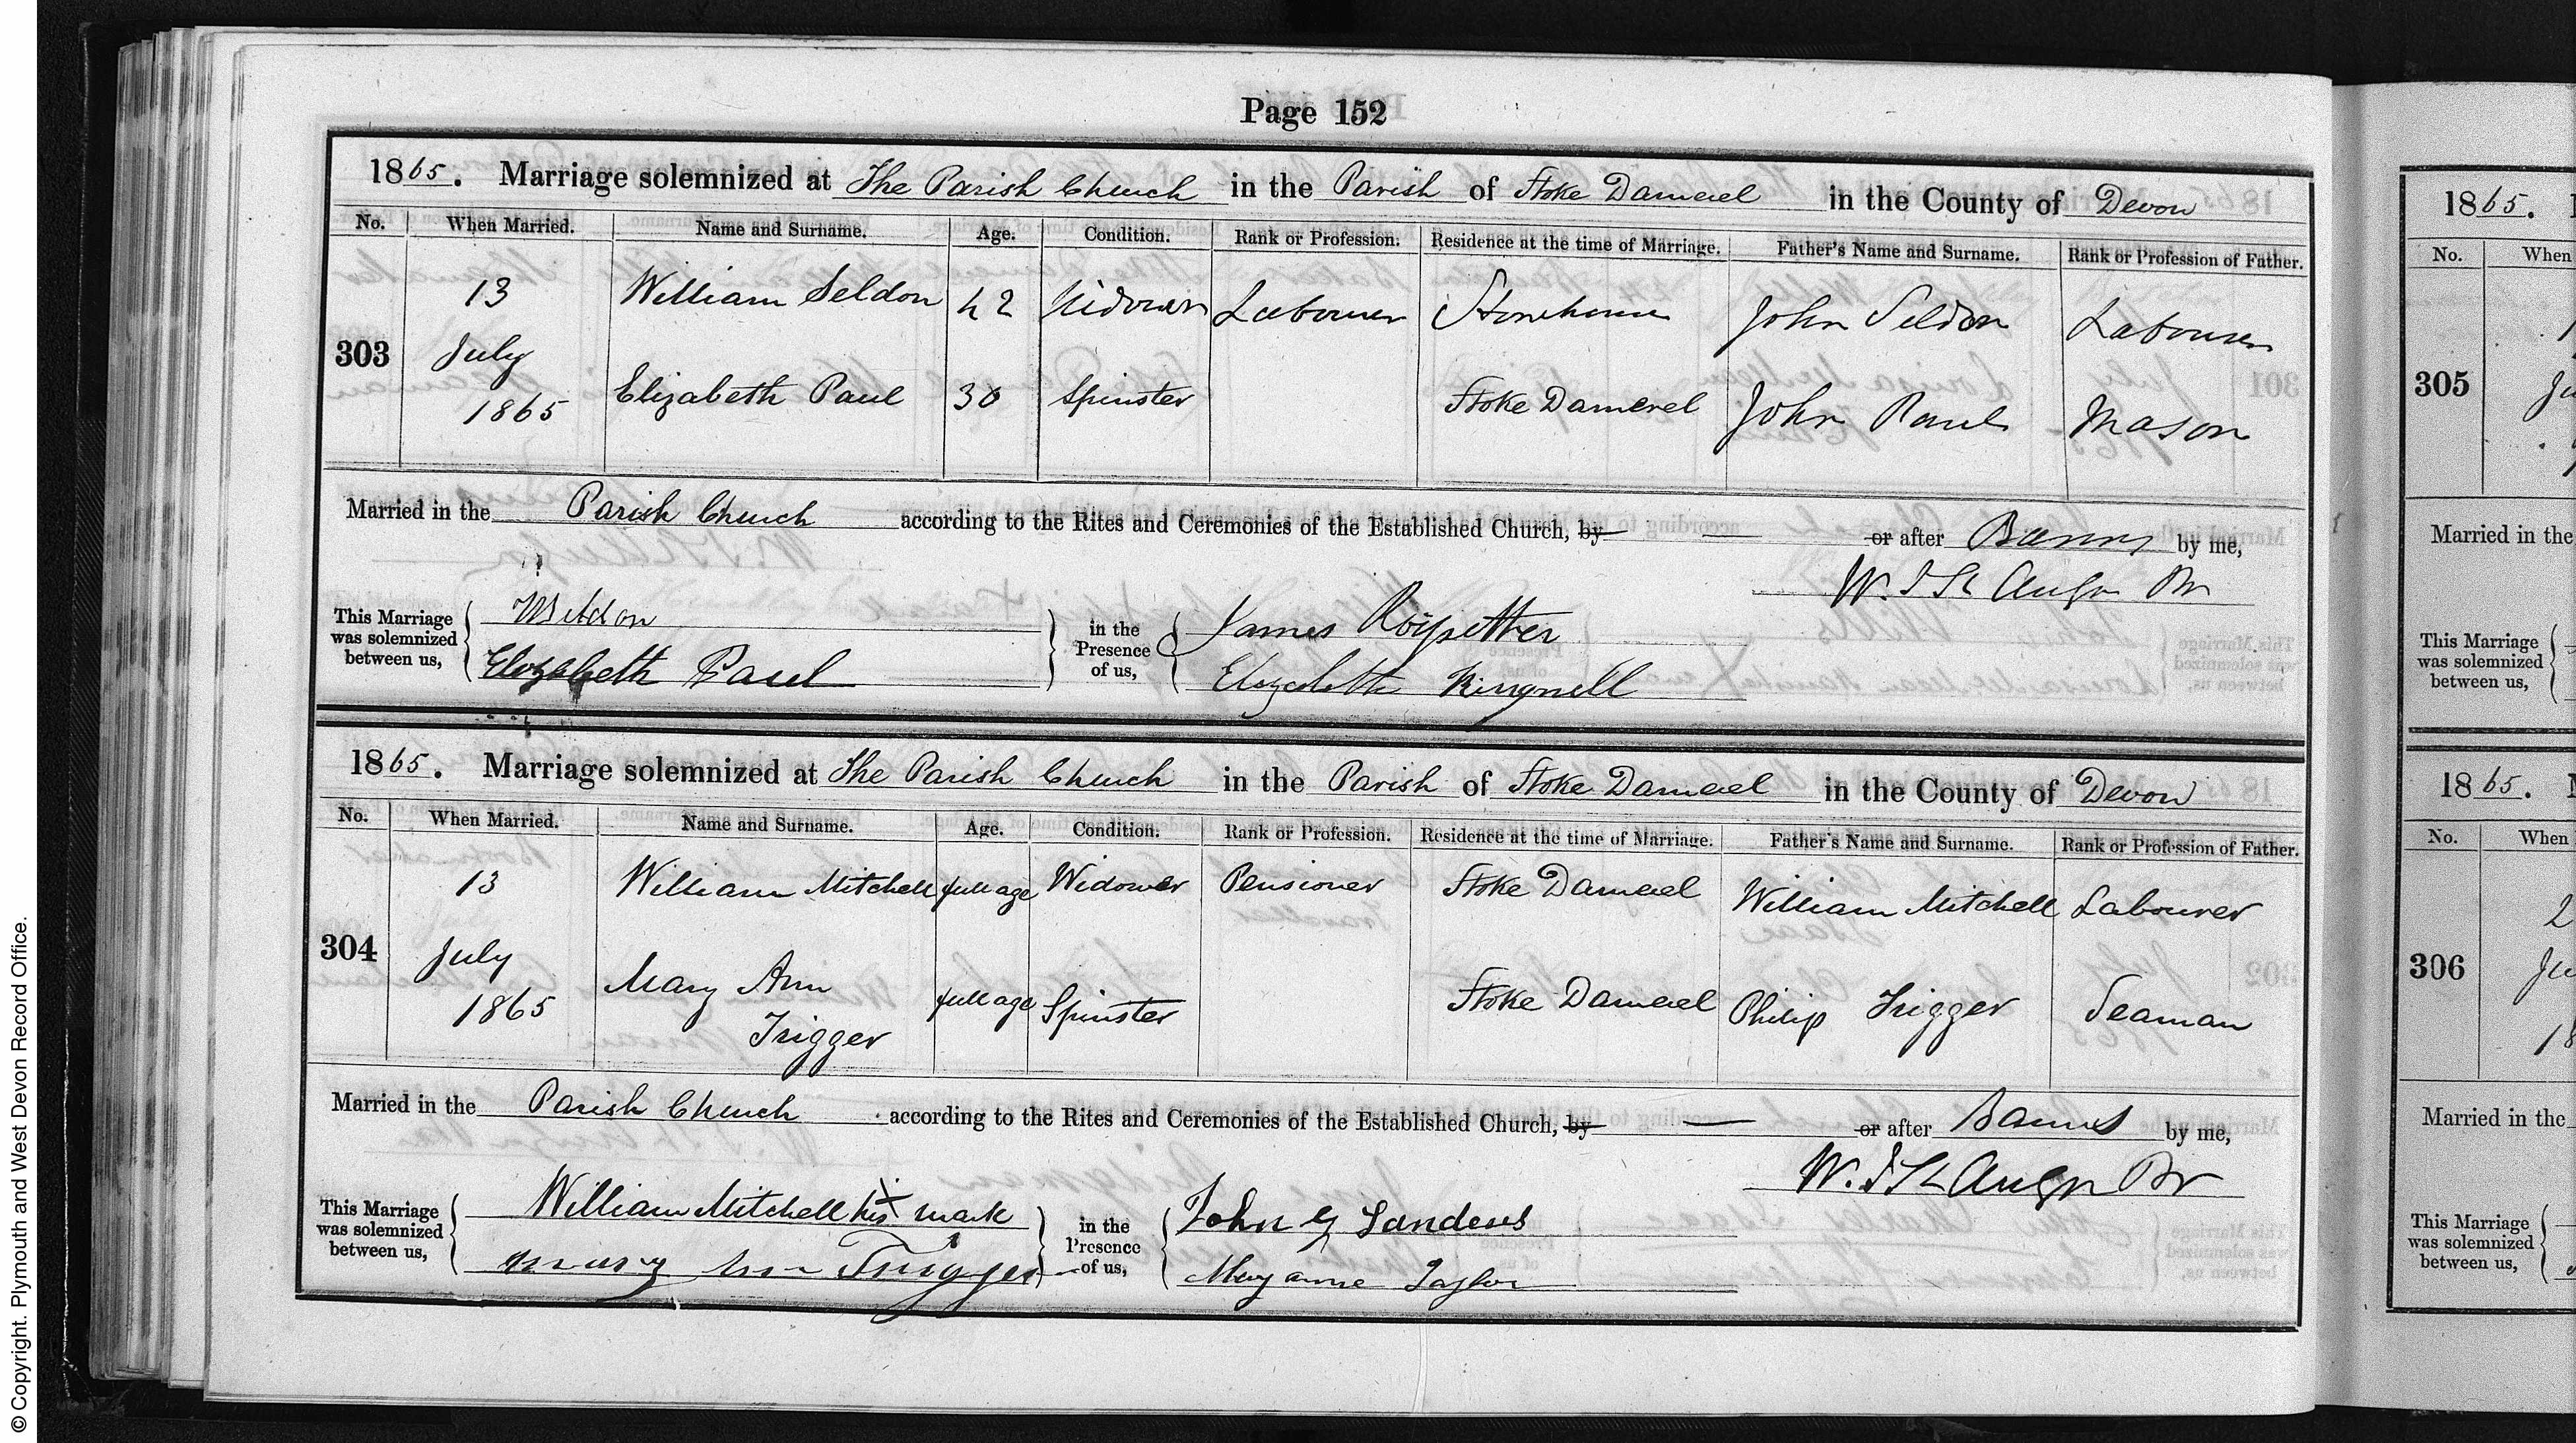 Page 152
1865. Marriage solemnized at The Parish Church in the Parish of Stoke Damerel in the County of Devon
No. When Married. Name and Surname. Age. Condition. Rank or Profession. Residence at the time of Marriage. Father's Name and Surname. Rank or Profession of Father.
303
13 July 1865
William Seldon 42 Widower Labourer Stonehouse John Seldon Labourer
Elizabeth Paul 30 Spinster Stoke Damerel John Paul Mason
Married in the Parish Church according to the Rites and Ceremonies of the Established Church, by — or after Banns by me,
W. J. St Aubyn
This Marriage was solemnized between us,
WSeldon
Elizabeth Paul
in the Presence of us,
James
Elizabeth Kingwell
1865. Marriage solemnized at The Parish Church in the Parish of Stoke Damerel in the County of Devon
No. When Married. Name and Surname. Age. Condition. Rank or Profession. Residence at the time of Marriage. Father's Name and Surname. Rank or Profession of Father.
304
13 July 1865
William Mitchell full age Widower Pensioner Stoke Damerel William Mitchell Labourer
Mary Ann Trigger full age Spinster Stoke Damerel Philip Trigger Seaman
Married in the Parish Church according to the Rites and Ceremonies of the Established Church, by — or after Banns by me,
W. J. St Aubyn
This Marriage was solemnized between us,
William Mitchell his X mark
Mary Ann Trigger
in the Presence of us,
John G Sanders
Mary anne Taylor
1865.
No. When
305
Married in the
This Marriage was solemnized between us,
1865.
No. When
306
Married in the
This Marriage was solemnized between us,
© Copyright. Plymouth and West Devon Record Office.